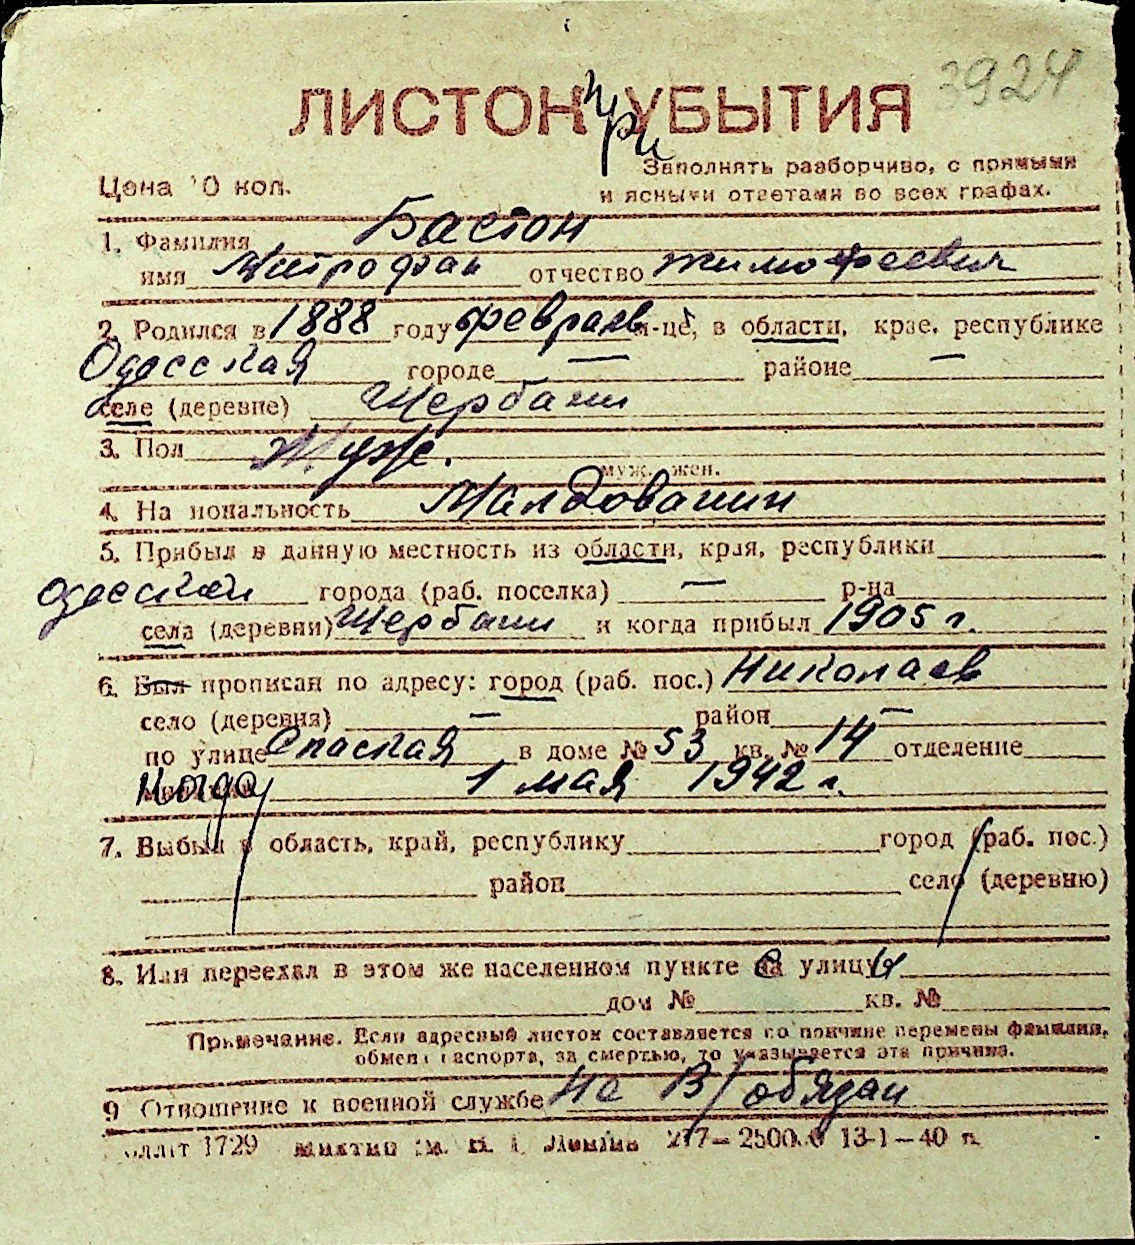 3924
ЛИСТОК при УБЫТИЯ
Заполнять разборчиво, с прямыми
Цена 10 коп.
и ясными ответами во всех графах.
1. Фамилия Бастон
имя Митрофан отчество Тимофеевич
2. Родился в 1888 году феврале м-це, в области, крае, республике
Одесская городе — районе —
селе (деревне) Щербани
3. Пол Муж.
муж. жен.
4. Национальность Малдованин
5. Прибыл в данную местность из области, края, республики
Одесской города (раб. поселка) — р-на
села (деревни) Щербани и когда прибыл 1905 г.
6. Был прописан по адресу: город (раб. пос.) Николаев
село (деревня) — район —
по улице Спаская в доме № 53 кв. № 14 отделение
Когда 1 мая 1942 г.
7. Выбыл в область, край, республику город (раб. пос.)
район село (деревню)
8. Или переехал в этом же населенном пункте с улицы
дом № кв. №
Примечание. Если адресный листок составляется по причине перемены фамилии,
обмена паспорта, за смертью, то указывается эта причина.
9 Отношение к военной службе Не в/обязан
1729 Ленина 13-1—40 г.